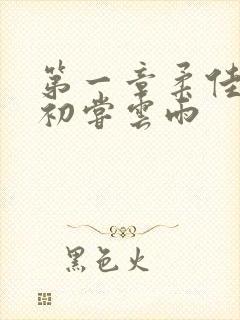 第一章柔佳
初嘗雲雨
黑色火